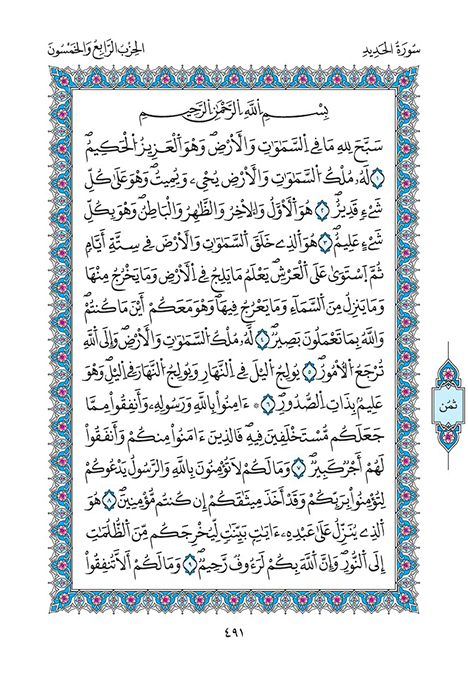 سُورَةُ الحَدِيدِ
الحِزْبُ الرَّابِعُ وَالخَمْسُونَ
بِسْمِ اِللَّهِ اِلرَّحْمَٰنِ اِلرَّحِيمِ
سَبَّحَ لِلهِ مَا فِے اِلسَّمَٰوَٰتِ وَالْأَرْضِ وَهْوَ اَلْعَزِيزُ اُلْحَكِيمُ
١ لَهُۥ مُلْكُ اُلسَّمَٰوَٰتِ وَالْأَرْضِ يُحْيِۦ وَيُمِيتُ وَهْوَ عَلَىٰ كُلِّ
شَےْءٖ قَدِيرٌ ٢ هُوَ اَلْأَوَّلُ وَالْأَخِرُ وَالظَّٰهِرُ وَالْبَاطِنُ وَهْوَ بِكُلِّ
شَےْءٍ عَلِيمٌ ٣ هُوَ اَلذِے خَلَقَ اَلسَّمَٰوَٰتِ وَالْأَرْضَ فِے سِتَّةِ أَيَّامٖ
ثُمَّ اَسْتَوَىٰ عَلَى اَلْعَرْشِ يَعْلَمُ مَا يَلِجُ فِے اِلْأَرْضِ وَمَا يَخْرُجُ مِنْهَا
وَمَا يَنزِلُ مِنَ اَلسَّمَآءِ وَمَا يَعْرُجُ فِيهَا وَهْوَ مَعَكُمْ أَيْنَ مَا كُنتُمْ
وَاللَّهُ بِمَا تَعْمَلُونَ بَصِيرٌ ٤ لَّهُۥ مُلْكُ اُلسَّمَٰوَٰتِ وَالْأَرْضِ وَإِلَى اَللَّهِ
تُرْجَعُ اُلْأُمُورُ ٥ يُولِجُ اُليْلَ فِے اِلنَّهَارِ وَيُولِجُ اُلنَّهَارَ فِے اِليْلِ وَهْوَ
عَلِيمُۢ بِذَاتِ اِلصُّدُورِ ٦ ءَامِنُوا۟ بِاللَّهِ وَرَسُولِهِۦ وَأَنفِقُوا۟ مِمَّا
جَعَلَكُم مُّسْتَخْلَفِينَ فِيهِ فَالذِينَ ءَامَنُوا۟ مِنكُمْ وَأَنفَقُوا۟
لَهُمْ أَجْرٌ كَبِيرٌ ٧ وَمَا لَكُمْ لَا تُؤْمِنُونَ بِاللَّهِ وَالرَّسُولُ يَدْعُوكُمْ
لِتُؤْمِنُوا۟ بِرَبِّكُمْ وَقَدْ أَخَذَ مِيثَٰقَكُمْ إِن كُنتُم مُّؤْمِنِينَ ٨ هُوَ
اَلذِے يُنَزِّلُ عَلَىٰ عَبْدِهِۦ ءَايَٰتِۢ بَيِّنَٰتٖ لِّيُخْرِجَكُم مِّنَ اَلظُّلُمَٰتِ
إِلَى اَلنُّورِ وَإِنَّ اَللَّهَ بِكُمْ لَرَءُوفٌ رَّحِيمٌ ٩ وَمَا لَكُمْ أَلَّا تُنفِقُوا۟
ثمن
٤٩١